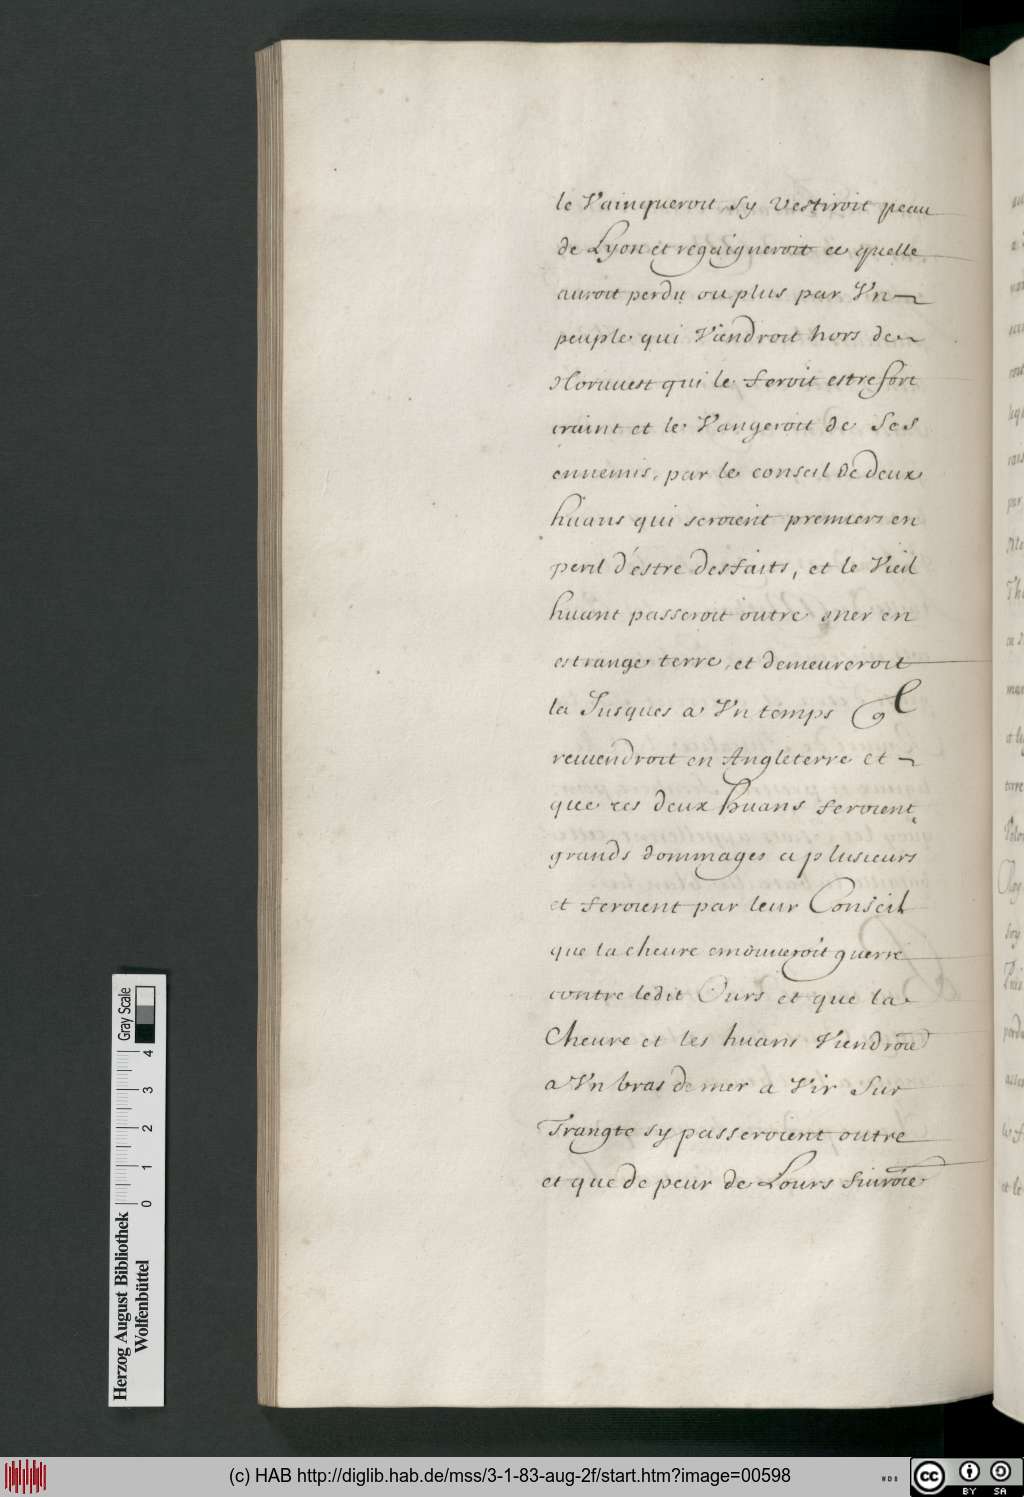 le Vainqueroit, Sy Vestiroit peau
de Lyon et regaigneroit ce quelle
auroit perdu ou plus par Vn
peuple qui Viendroit hors de
Noruuest qui le feroit estre fort
craint et le Vangeroit de Ses
ennemis, par le conseil de deux
huans qui seroient premiers en
peril d'estre desfaits, et le Vieil
huant passeroit outre mer en
estrange terre, et demeureroit
la Jusques a Vn temps Et
reuiendroit en Angleterre et
que ces deux huans feroient
grands dommages a plusieurs
et feroient par leur Conseil
que la cheure emouueroit guerre
contre ledit Ours et que la
Cheure et les huans Viendroie
a Vn bras de mer a Vir Sur
Trangte sy passeroient outre
et que de peur de Lours fuiroie
Herzog August Bibliothek
Wolfenbüttel
0 1 2 3 4
Gray Scale
(c) HAB http://diglib.hab.de/mss/3-1-83-aug-2f/start.htm?image=00598
WDB
cc BY SA